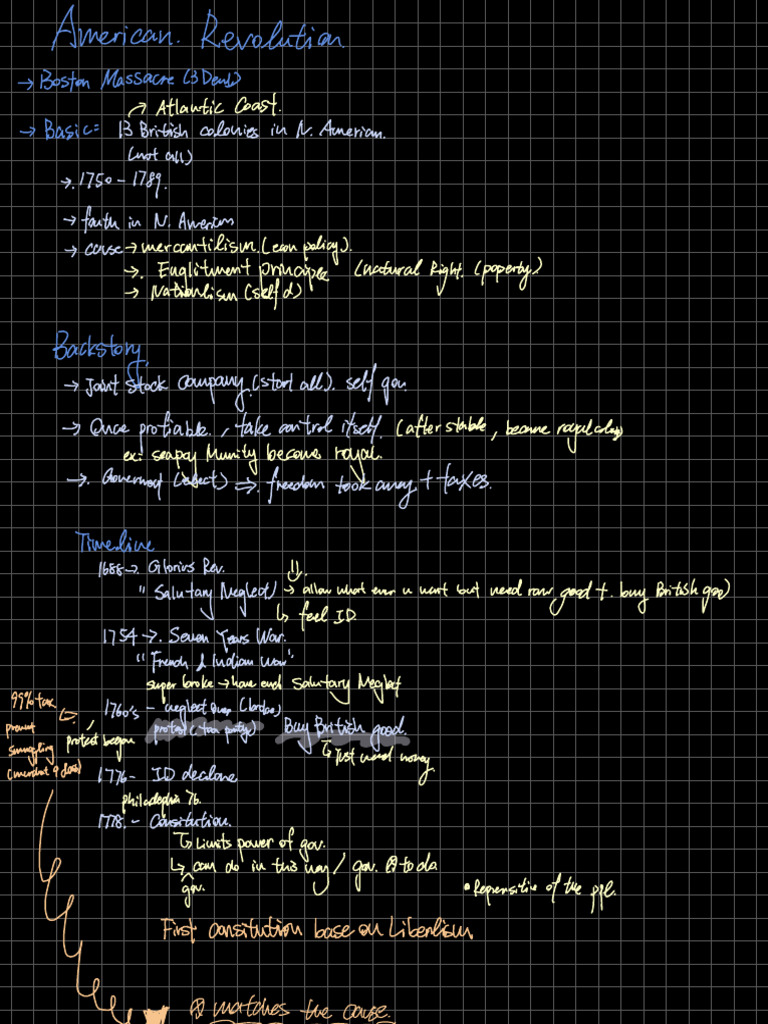 American. Revolution
→ Boston Massacre (3 Dead)
→ Atlantic Coast.
→ Basic = 13 British colonies in N. Amerian.
(not all)
→ 1750 - 1789.
→ faith in N. Americans
→ cause → mercantilism. (econ policy).
→ Englitment principle (natural Right. (poperty)
→ Nationlism (self d)
Backstory
→ Joint Stock Company. (start all). self gov.
→ Once profiable, take control itself. (after stable, become royal colony)
ex: seapay Munity become royal.
→ Government (elect) ⇒ freedom took away + taxes.
Timeline
1688 → Glorius Rev.
" Salutary Neglect → allow what ever u want but need raw good + buy British goo)
↳ feel ID
1754 → Seven Years War.
"French & Indian War"
super broke → have end Salutary Neglect
99% tax
1760's - neglect over
prevent
smuggling
protest began
Buy British good.
↳ Just need money
1776 - ID declare
philadephia 76.
1778. - Consitution.
↳ Limits power of gov.
↳ can do in this way / gov. to do
gov.
• Repensitive of the ppl.
First consitution base on Liberlism.
matches the cause.